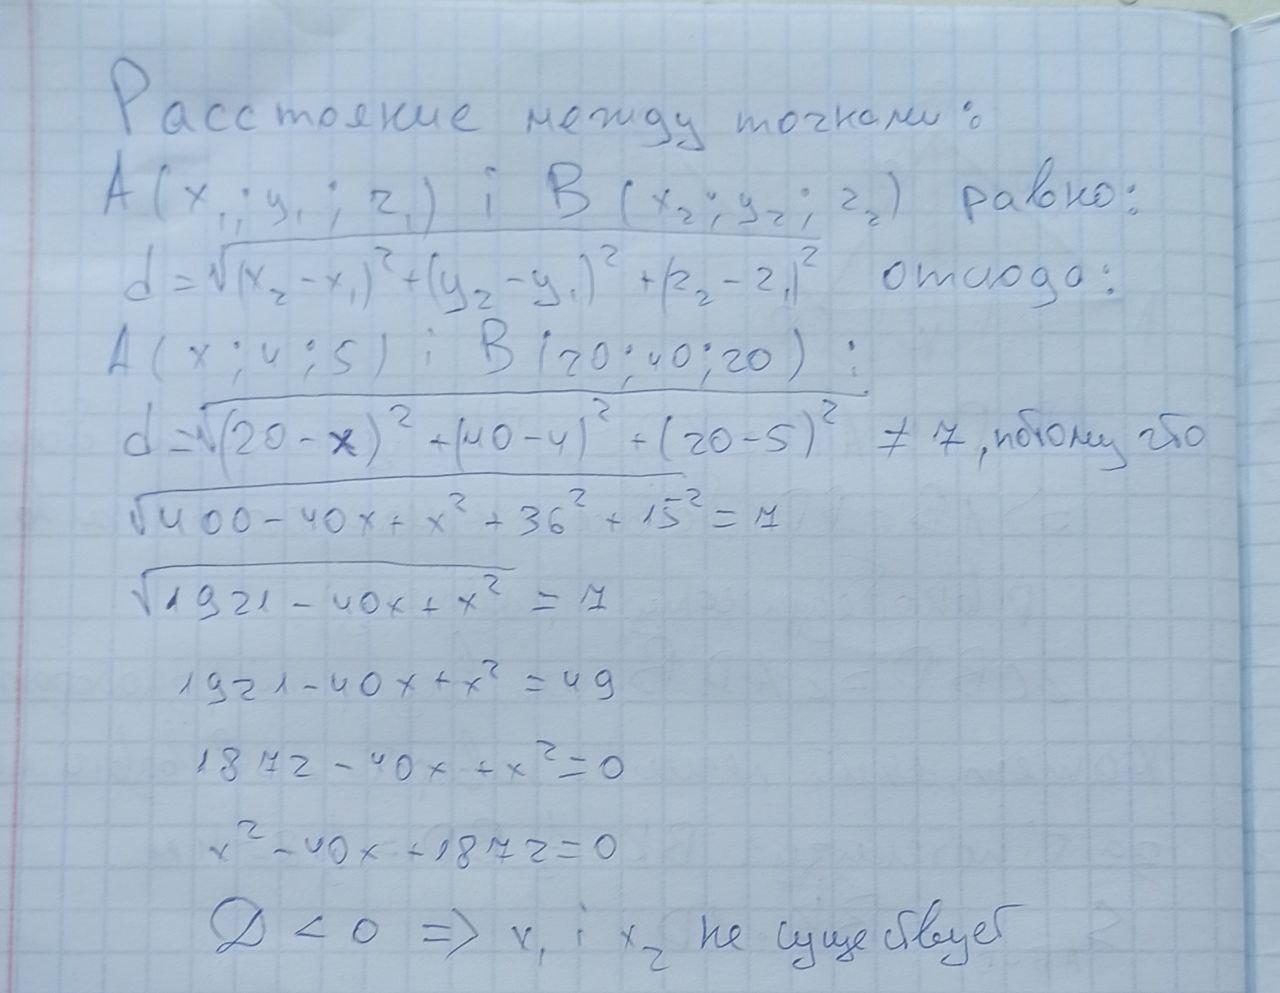 Расстояние между точками:
A(x₁; y₁; z₁) i B(x₂; y₂; z₂) равно:
d = √(x₂ - x₁)² + (y₂ - y₁)² + (z₂ - z₁)² отсюда:
A(x; 4; 5) i B(20; 40; 20):
d = √(20 - x)² + (40 - 4)² + (20 - 5)² ≠ 7, потому что
√400 - 40x + x² + 36² + 15² = 7
√1921 - 40x + x² = 7
1921 - 40x + x² = 49
1872 - 40x + x² = 0
x² - 40x + 1872 = 0
D < 0 => x₁ i x₂ не существует